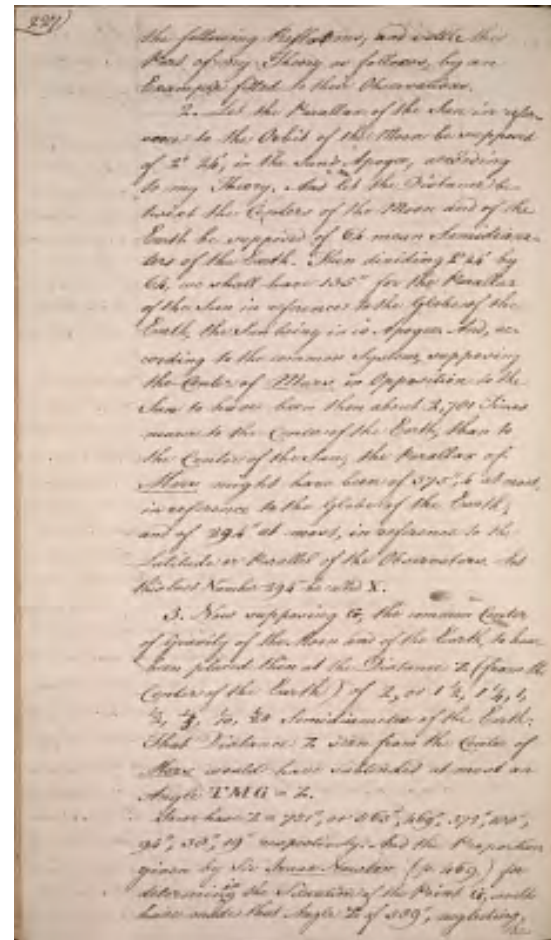 227)
the following Reflections, and settle this
Part of my Theory as follows, by an
Example fitted to their Observations.
2. Let the Parallax of the Sun in refer-
ence to the Orbit of the Moon be supposed
of 2° 24', in the Sun's Apogee, according
to my Theory. And let the Distance be-
twixt the Centers of the Moon and of the
Earth be supposed of 64 mean Semidiame-
ters of the Earth. Then dividing 2° 24' by
64, we shall have 135" for the Parallax
of the Sun in reference to the Globe of the
Earth, the Sun being in its Apogee. And, ac-
cording to the common System, supposing
the Center of Mars, in Opposition to the
Sun to have been then about 2,701 Times
nearer to the Center of the Earth, than to
the Center of the Sun; the Parallax of
Mars might have been of at most,
in reference to the Globe of the Earth;
and of 294" at most, in reference to the
Latitude or Parallel of the Observators. Let
this last Number 294" be called X.
3. Now supposing G, the common Center
of Gravity of the Moon and of the Earth, to have
been placed then at the Distance Z (from the
Center of the Earth) of 2, or 1½, 1¼, 1,
Semidiameters of the Earth:
That Distance Z seen from the Center of
Mars would have subtended at most an
Angle TMG = Z.
have Z = 751", or 563", 469",
94", 38", 19" respectively. And the Proportion
given by Sir Isaac Newton (p. 469) for
determining the Situation of the Point G, would
have made that Angle Z of neglecting,
the